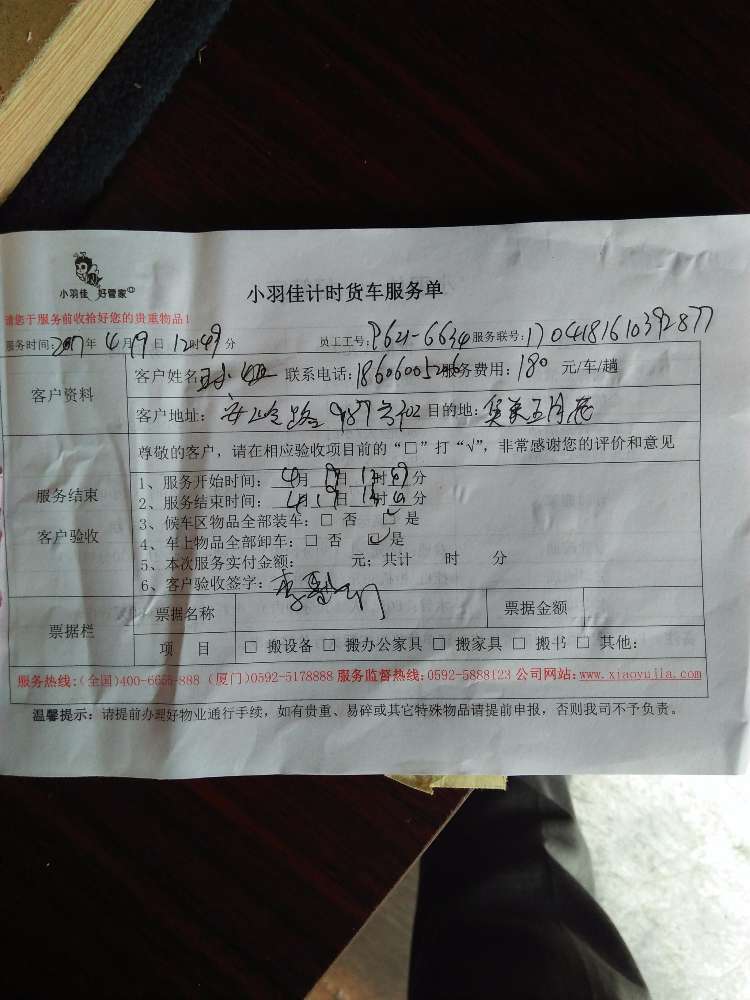 小羽佳 好管家
小羽佳计时货车服务单
请您于服务前收拾好您的贵重物品！
服务时间：2017年4月19日12时49分 员工工号：P621-6634 服务联号：1704181610392877
客户资料
客户姓名： 联系电话： 服务费用：180 元/车/趟
客户地址：安岭路987号402 目的地：
尊敬的客户，请在相应验收项目前的“□”打“√”，非常感谢您的评价和意见
服务结束
客户验收
1、服务开始时间：4月19日 时 分
2、服务结束时间：4月19日 时 分
3、候车区物品全部装车：□ 否 □ 是
4、车上物品全部卸车：□ 否 ☑是
5、本次服务实付金额： 元；共计 时 分
6、客户验收签字：
票据栏
票据名称 票据金额
项 目 □ 搬设备 □ 搬办公家具 □ 搬家具 □ 搬书 □ 其他：
服务热线：（全国）400-6655-888（厦门）0592-5178888 服务监督热线：0592-5888123 公司网站：www.xiaoyujia.com
温馨提示：请提前办理好物业通行手续，如有贵重、易碎或其它特殊物品请提前申报，否则我司不予负责。